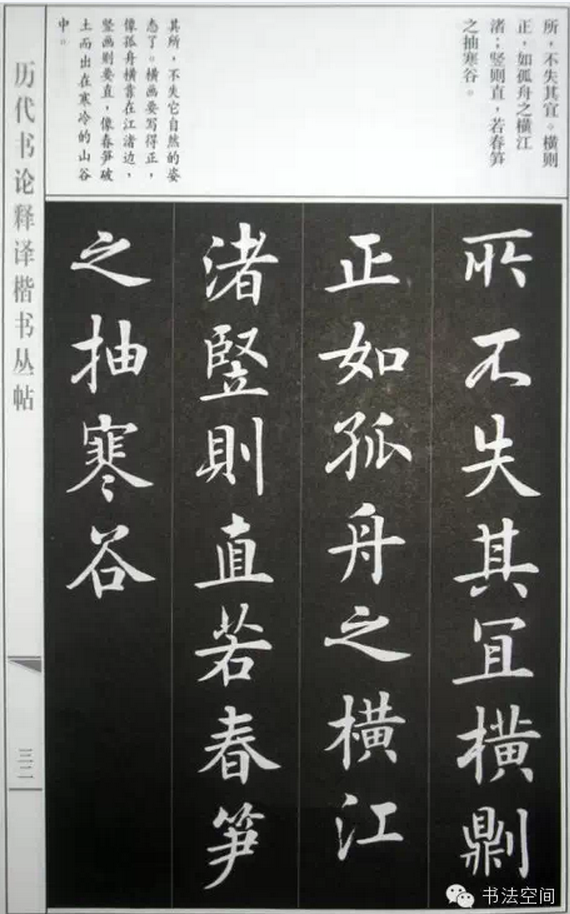 所，不失其宜。横则
正，如孤舟之横江
渚；竖则直，若春笋
之抽寒谷。
其所，不失它自然的姿
态了。横画要写得正，
像孤舟横靠在江渚边，
竖画则要直，像春笋破
土而出在寒冷的山谷
中。
所不失其冝橫則
正如孤舟之橫江
渚竪則直若春笋
之抽寒谷
历代书论释译楷书丛帖
三二
书法空间